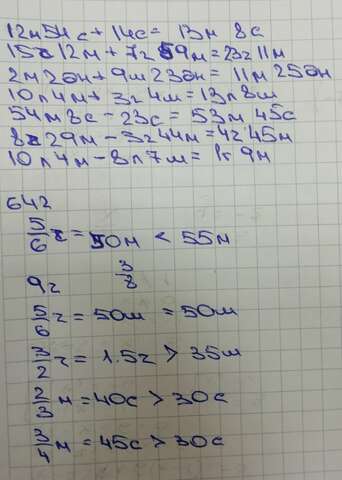 12м54с + 14с = 13м 8с
15г12м + 7г59м=23г11м
2м2дн+9м23дн = 11м25дн
10л4м+ 3г4ш=13л8ш
54м8с - 23с = 53м 45с
8г29м - 3г44м=4г45м
10л4м-8л7ш= 1г 9м
642
5/6 г = 50м < 55м
9г 3/8
5/6 г = 50ш = 50ш
3/2 г = 1.5г > 35ш
2/3 м = 40с > 30с
3/4 м = 45с > 30с